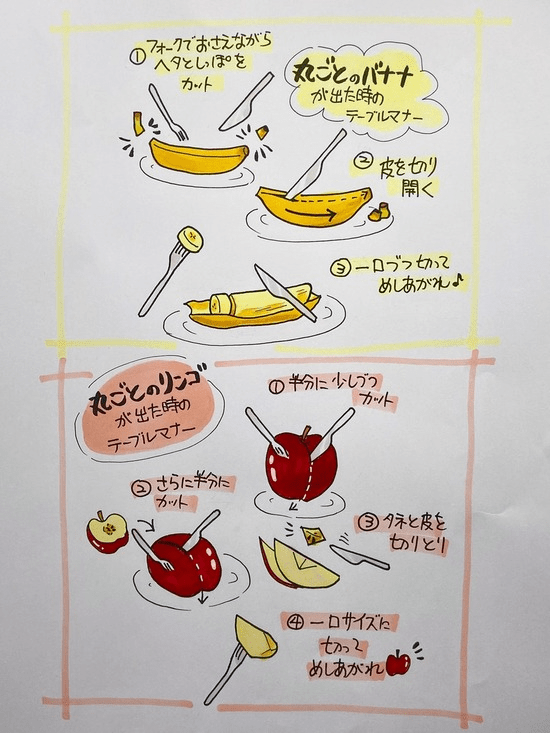 ①フォークでおさえながら
ヘタとしっぽを
カット
丸ごとのバナナ
が出た時の
テーブルマナー
②皮を切り
開く
③一口づつ切って
めしあがれ♪
丸ごとのリンゴ
が出た時の
テーブルマナー
①半分に少しづつ
カット
②さらに半分に
カット
③タネと皮を
切りとり
④一口サイズに
切って
めしあがれ